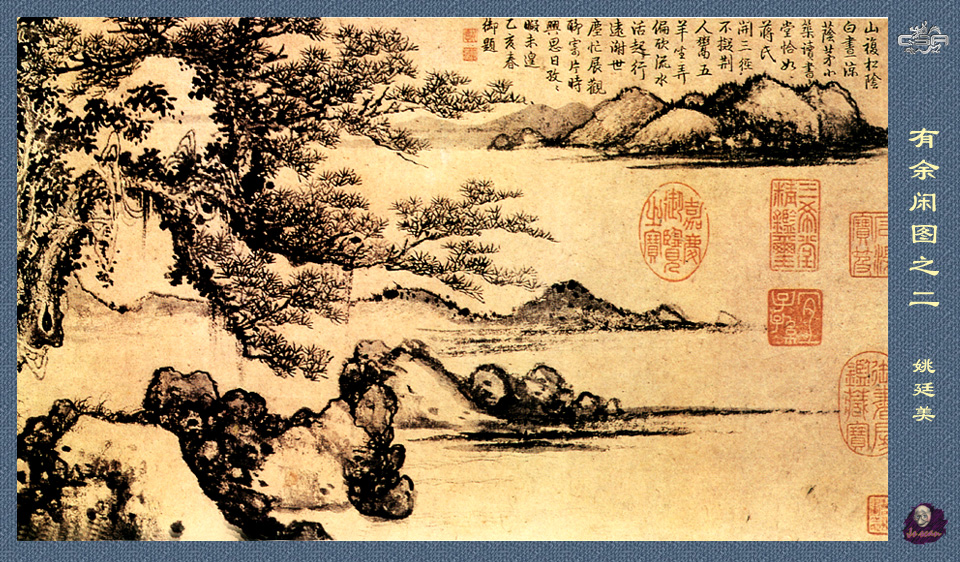 山複松陰
白晝涼
蔭茅小
築讀書
堂恰如
蔣氏
開三徑
不擬荆
人鬻五
羊坐弄
偏欣流水
活起行
遠謝世
塵忙展觀
聊寄片時
興思日孜〻
暇未遑
乙亥春
御題
嘉慶
御覽
之寶
三希堂
精鑑璽
宜
子孫
石渠
寶笈
鑑藏寶
CSF
有余闲图之二
姚廷美